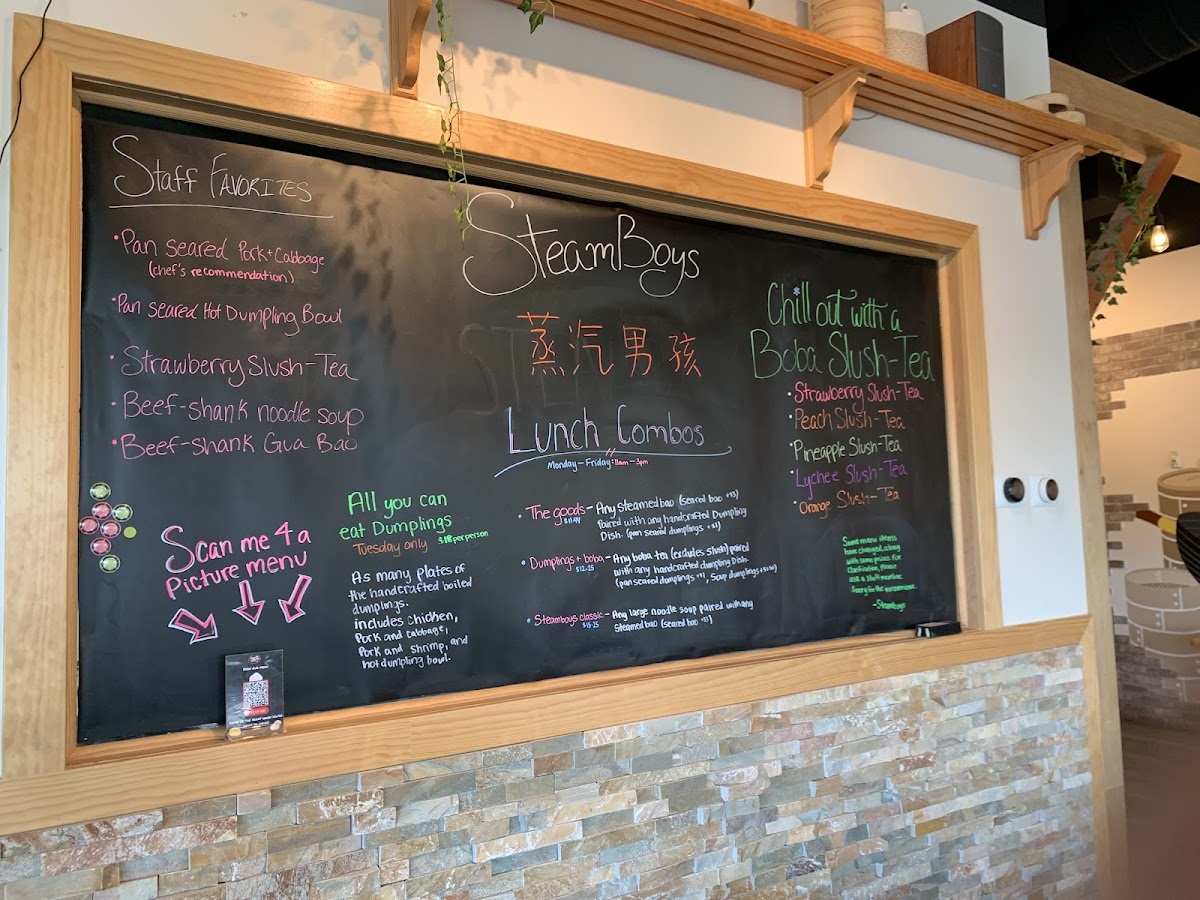 Staff Favorites
• Pan seared Pork + Cabbage
(chef's recommendation)
• Pan seared Hot Dumpling Bowl
• Strawberry Slush-Tea
• Beef-shank noodle soup
• Beef-shank Gua Bao
Scan me 4 a
Picture menu
All you can
eat Dumplings
Tuesday only $18 per person
As many plates of
the handcrafted boiled
dumplings.
includes chicken,
Pork and cabbage,
Pork and shrimp, and
hot dumpling bowl.
SteamBoys
蒸汽男孩
Lunch Combos
Monday – Friday: 11am – 3pm
• The goods – Any steamed bao (seared bao +$3)
Paired with any handcrafted Dumpling
Dish. (pan seared dumplings +$1)
• Dumplings + boba – Any boba tea (excludes slush) paired
$12.25 with any handcrafted dumpling Dish.
(pan seared dumplings +$1, Soup dumplings
• Steamboys classic – Any large noodle soup paired with any
Steamed bao (seared bao +$3)
Chill out with a
Boba Slush-Tea
• Strawberry Slush-Tea
• Peach Slush-Tea
• Pineapple Slush-Tea
• Lychee Slush-Tea
• Orange Slush-Tea
Some menu items
have changed, along
with some prices. For
clarification, Please
ask a staff member.
Sorry for the inconvenience.
~Steamboys